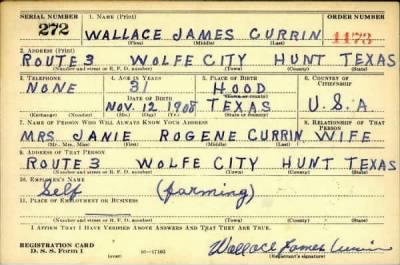 SERIAL NUMBER 1. NAME (Print) ORDER NUMBER
272 WALLACE JAMES CURRIN 1173
(First) (Middle) (Last)
2. ADDRESS (Print)
ROUTE 3 WOLFE CITY HUNT TEXAS
(Number and street or R. F. D. number) (Town) (County) (State)
3. TELEPHONE 4. AGE IN YEARS 5. PLACE OF BIRTH 6. COUNTRY OF CITIZENSHIP
NONE 31 HOOD
DATE OF BIRTH (Town or county)
NOV. 12 1908 TEXAS U.S.A
(Exchange) (Number) (Mo.) (Day) (Yr.) (State or country)
7. NAME OF PERSON WHO WILL ALWAYS KNOW YOUR ADDRESS 8. RELATIONSHIP OF THAT PERSON
MRS. JANIE ROGENE CURRIN WIFE
(Mr., Mrs., Miss) (First) (Middle) (Last)
9. ADDRESS OF THAT PERSON
ROUTE 3 WOLFE CITY HUNT TEXAS
(Number and street or R. F. D. number) (Town) (County) (State)
10. EMPLOYER'S NAME
Self (farming)
11. PLACE OF EMPLOYMENT OR BUSINESS
(Number and street or R. F. D. number) (Town) (County) (State)
I AFFIRM THAT I HAVE VERIFIED ABOVE ANSWERS AND THAT THEY ARE TRUE.
REGISTRATION CARD
D. S. S. Form 1 16—17105 Wallace James Currin
(Registrant's signature)